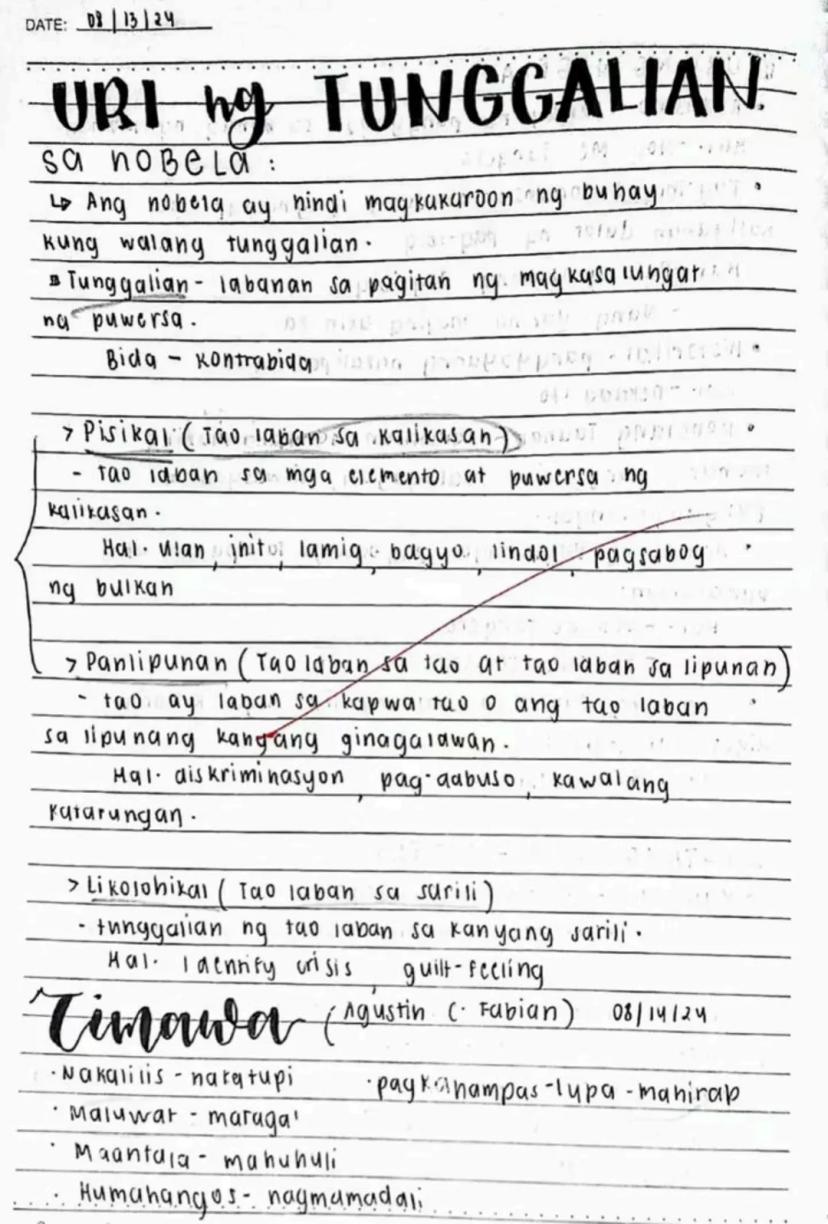 DATE: 08/13/24
URI ng TUNGGALIAN.
sa nobela:
↳ Ang nobela ay hindi magkakaroon ng buhay
kung walang tunggalian.
Tunggalian - labanan sa pagitan ng magkasalungat
na puwersa.
Bida - kontrabida
> Pisikal (Tao laban sa kalikasan)
- Tao laban sa mga elemento at puwersa ng
kalikasan.
Hal. ulan, init, lamig, bagyo, lindol, pagsabog
ng bulkan
> Panlipunan (Tao laban sa tao at tao laban sa lipunan)
- tao ay laban sa kapwa tao o ang tao laban
sa lipunang kanyang ginagalawan.
Hal. diskriminasyon, pag-aabuso, kawalang
katarungan.
> Likolohikal (Tao laban sa sarili)
- tunggalian ng tao laban sa kanyang sarili.
Hal. Identity crisis, guilt-feeling
Timawa (Agustin C. Fabian) 08/14/24
· Nakalilis - naratupi · pagkahampas-lupa - mahirap
· Maluwat - maragal
· Maantala - mahuhuli
· Humahangos - nagmamadali